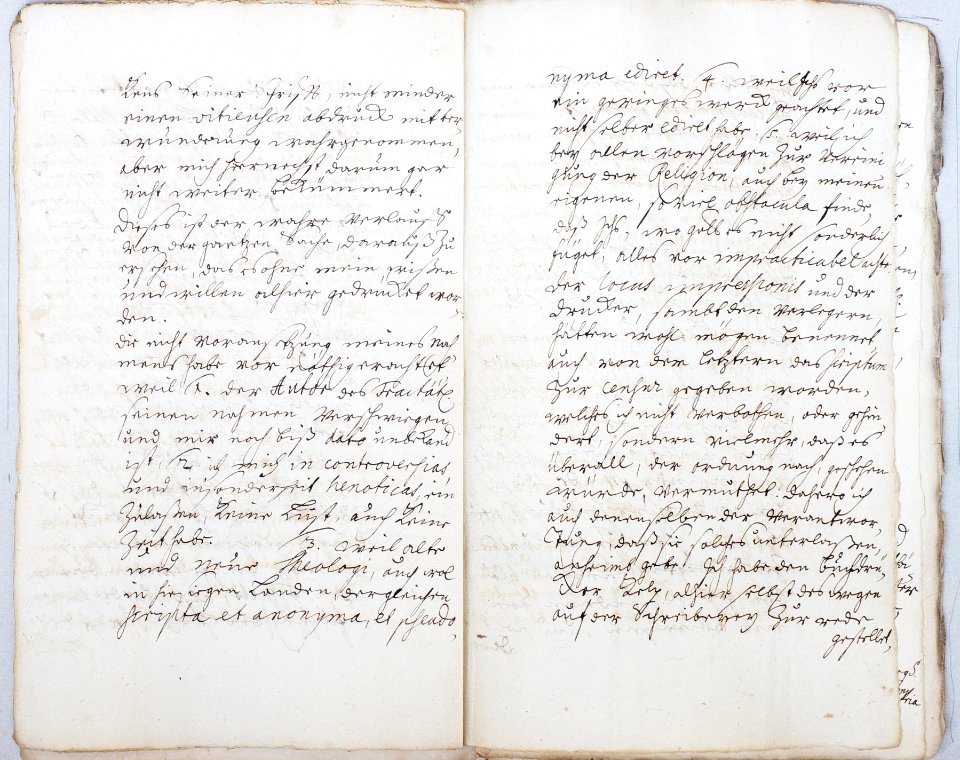 kens seiner Schrifft, nicht minder
einen vitieusen abdruck mit ver
wunderung wahrgenommen,
aber mich hernechst darum gar
nicht weiter bekümmert.
Dieses ist der wahre Verlauff
von der gantzen Sache, darauß zu
ersehen, das es ohne mein wißen
und willen alhier gedrucket wor,
den.
die nicht Voransetzung meines nah
mens habe vor nöthig erachtet
weil 1. der Author des Tractats
seinen nahmen verschwiegen,
und mir noch biß dato unbekand
ist, 2. ich mich in controversias
und insonderheit henoticas, ein
zulassen, keine Lust, auch keine
Zeit habe. 3. weil alte
und neue Theologi, auch wol
in hiesigen Landen, dergleichen
scripta et anonyma, et pseudo,
nyma ediret. 4. weil ichs vor
ein geringes werck geachtet, und
nicht selber ediret habe. 5. weil ich
bey allen Vorschlägen zur Verei
gung der Religion, auch bey meinen
eigenen, so viel obstacula finde,
daß Ich, wo Gott es nicht sonderlich
füget, alles vor impracticabel achte
Der locus impressionis und der
drucker, sambt den Verlegern,
hätten wohl mögen benennet
auch von dem letztern das scriptum
zur Censur gegeben worden,
welches ich nicht verbotten, oder gehin
dert, sondern vielmehr, daß es
überall, der ordnung nach, geschehen
würde, vermuthet. dahero ich
auch denenselben der Verantwor,
tung, daß sie solches unterlaßen,
anheimb gebe. Ich habe den Buchdru,
cker alhier selbst deswegen
auf der Schreiberey zur rede
gestellet,